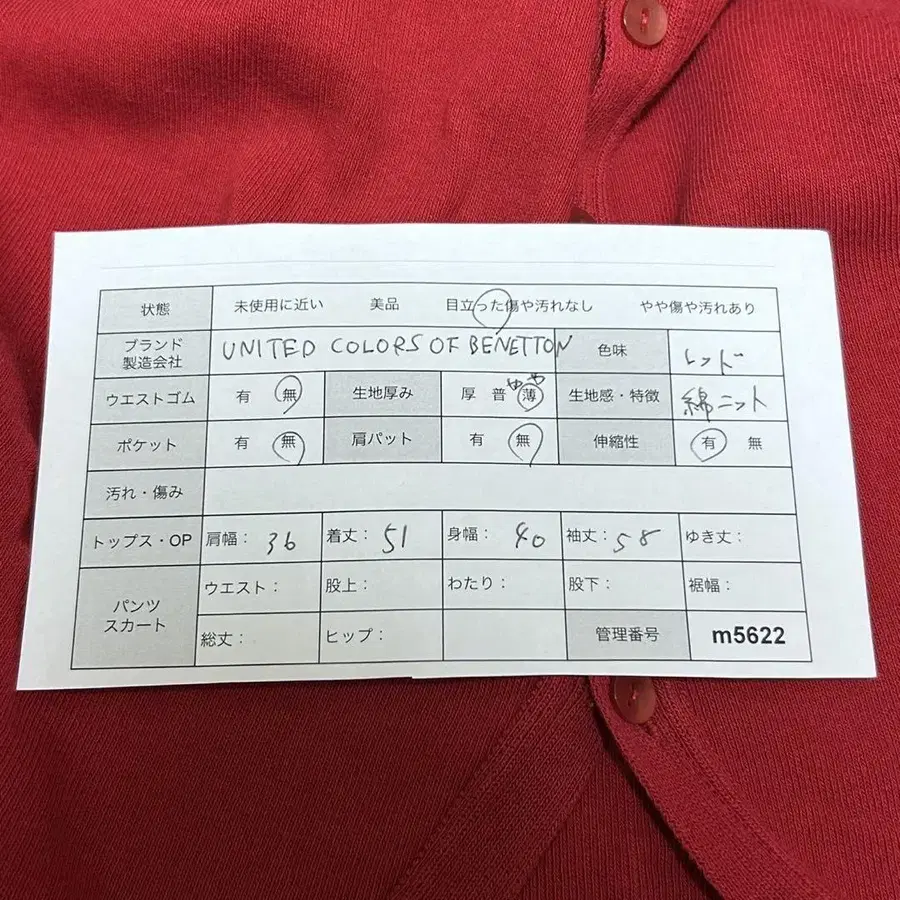 状態 未使用に近い 美品 目立った傷や汚れなし やや傷や汚れあり
ブランド
製造会社 UNITED COLORS OF BENETTON 色味 レッド
ウエストゴム 有 無 生地厚み 厚 普 やや 薄 生地感・特徴 綿ニット
ポケット 有 無 肩パット 有 無 伸縮性 有 無
汚れ・傷み
トップス・OP 肩幅： 36 着丈： 51 身幅： 40 袖丈： 58 ゆき丈：
パンツ
スカート ウエスト： 股上： わたり： 股下： 裾幅：
総丈： ヒップ： 管理番号 m5622